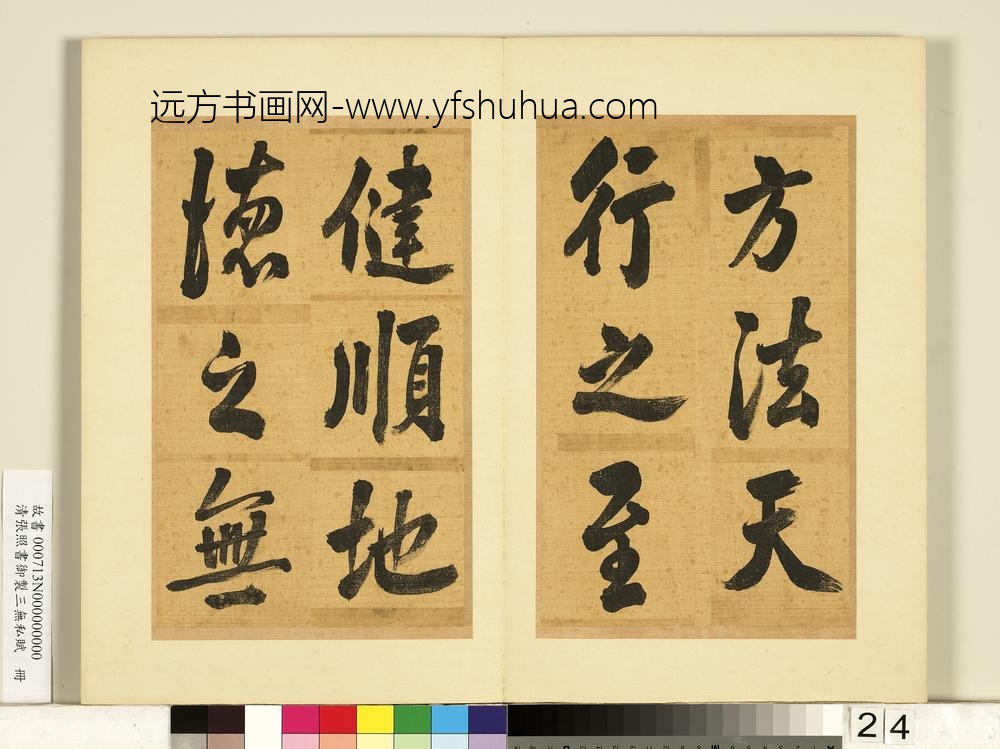 远方书画网-www.yfshuhua.com
方法天
行之至
健順地
德之無
故書 000713N000000000
清張照書御製三無私賦 冊
24